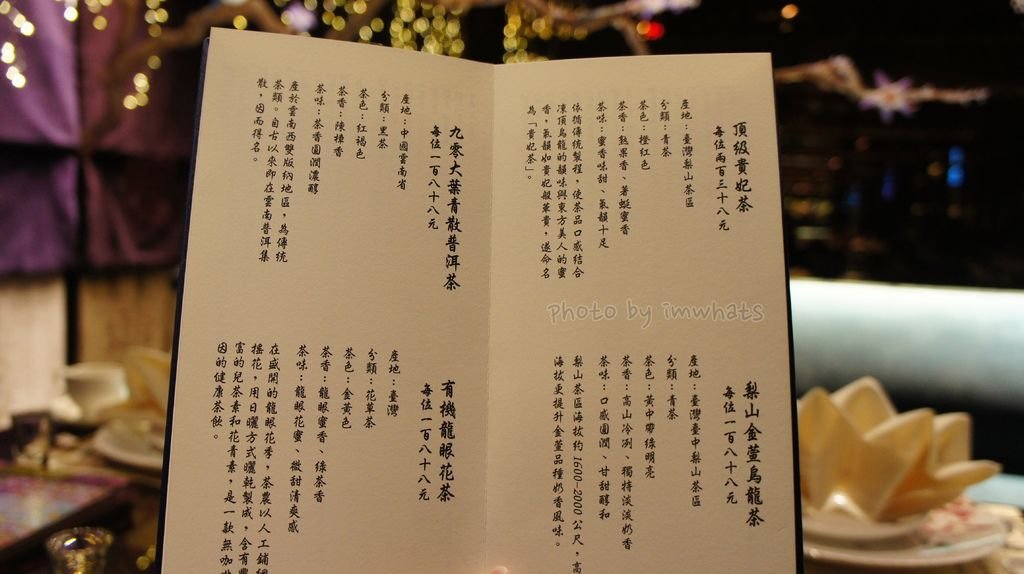 頂級貴妃茶
每位兩百三十八元
產地：臺灣梨山茶區
分類：青茶
茶色：橙紅色
茶香：熟果香、著蜒蜜香
茶味：蜜香味甜、氣韻十足
依循傳統製程，使茶品口感結合
凍頂烏龍的韻味與東方美人的蜜
香，氣韻如貴妃般華貴，遂命名
為「貴妃茶」。
梨山金萱烏龍茶
每位一百八十八元
產地：臺灣臺中梨山茶區
分類：青茶
茶色：黃中帶綠明亮
茶香：高山冷冽、獨特淡淡奶香
茶味：口感圓潤、甘甜醇和
梨山茶區海拔約1600-2000公尺，高
海拔更提升金萱品種奶香風味。
九零大葉青散普洱茶
每位一百八十八元
產地：中國雲南省
分類：黑茶
茶色：紅褐色
茶香：陳樟香
茶味：茶香圓潤濃醇
產於雲南西雙版納地區，為傳統
茶類。自古以來即在雲南普洱集
散，因而得名。
有機龍眼花茶
每位一百八十八元
產地：臺灣
分類：花草茶
茶色：金黃色
茶香：龍眼蜜香、綠茶香
茶味：龍眼花蜜、微甜清爽感
在盛開的龍眼花季，茶農以人工鋪網
搖花，用日曬方式曬乾製成，含有豐
富的兒茶素和花青素，是一款無咖啡
因的健康茶飲。
photo by imwhats